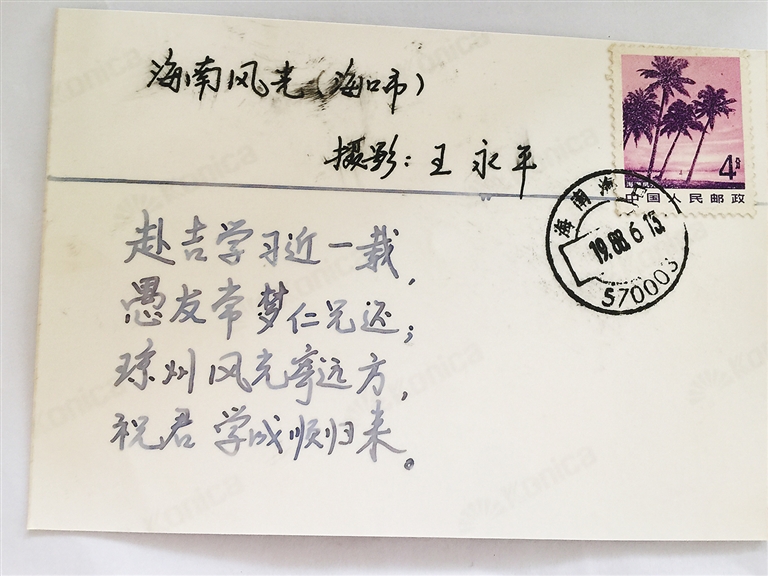 海南风光(海口市)
摄影:王永平
4分
中国人民邮政
海南海口
1988.6.13
570003
赴吉学习近一载,
愚友常梦仁兄还;
琼州风光寄远方,
祝君学成顺归来。
Konica